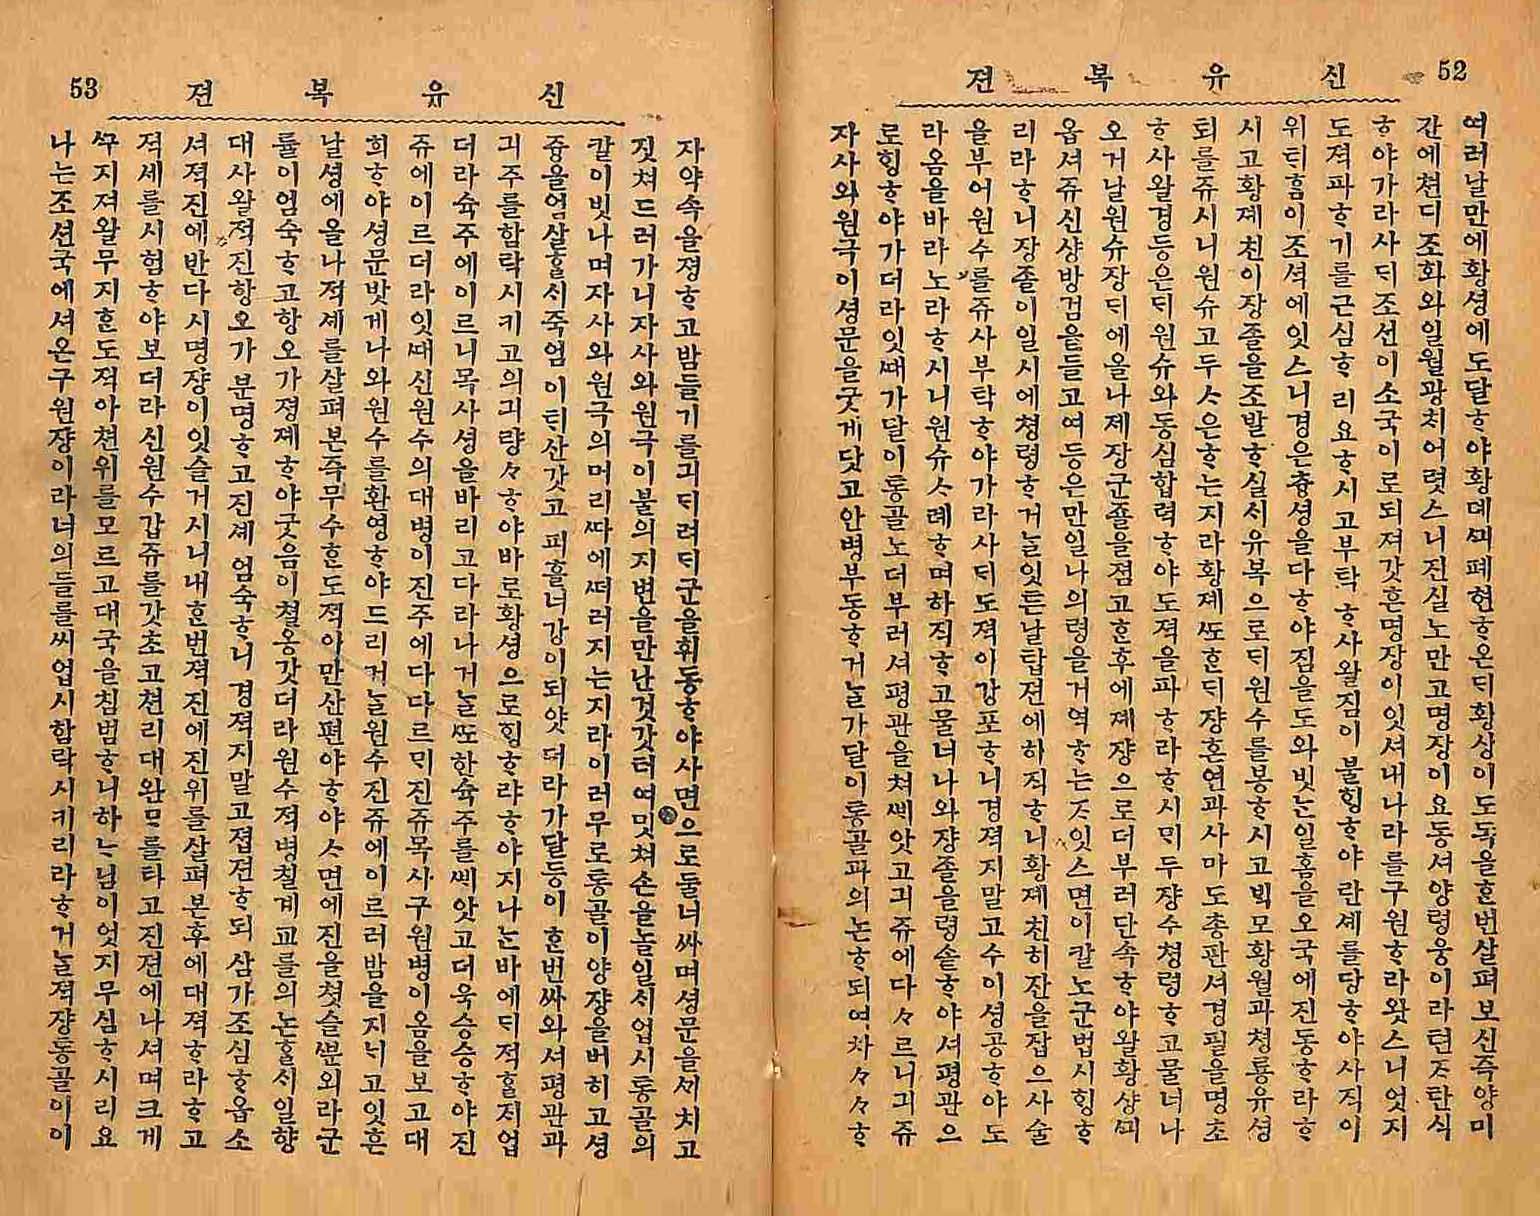 52 신유복젼
여러날만에황셩에도달ᄒᆞ야황뎨ᄭᅴ폐현ᄒᆞ온ᄃᆡ황상이도독을ᄒᆞᆫ번살펴보신즉양미
간에쳔디조화와일월광ᄎᆡ어렷스니진실노만고명장이요동셔양령웅이라텬ᄌᆞ탄식
ᄒᆞ야가라사ᄃᆡ조선이소국이로되져갓흔명장이잇셔내나라를구원ᄒᆞ라왓스니엇지
도젹파ᄒᆞ기를근심ᄒᆞ리요ᄒᆞ시고부탁ᄒᆞ사왈짐이불ᄒᆡᆼᄒᆞ야란셰를당ᄒᆞ야사직이
위ᄐᆡᄒᆞᆷ이조셕에잇스니경은츙셩을다ᄒᆞ야짐을도와빗ᄂᆞᆫ일홈을오국에진동ᄒᆞ라ᄒᆞ
시고황졔친이장졸을조발ᄒᆞ실ᄉᆡ유복으로ᄃᆡ원수를봉ᄒᆞ시고ᄇᆡᆨ모황월과쳥룡유셩
퇴를쥬시니원슈고두ᄉᆞ은ᄒᆞᄂᆞᆫ지라황졔ᄯᅩᄒᆞᆫᄃᆡ쟝흔연과사마도총관셔경필을명초
ᄒᆞ사왈경등은ᄃᆡ원슈와동심합력ᄒᆞ야도젹을파ᄒᆞ라ᄒᆞ시ᄆᆡ두쟝수쳥령ᄒᆞ고물너나
오거날원슈장ᄃᆡ에올나졔장군졸을졈고ᄒᆞᆫ후에졔쟝으로더부러단속ᄒᆞ야왈황샹ᄭᅴ
옵셔쥬신샹방검을들고여등은만일나의령을거역ᄒᆞᄂᆞᆫᄌᆞ잇스면이칼노군법시ᄒᆡᆼᄒᆞ
리라ᄒᆞ니장졸이일시에쳥령ᄒᆞ거ᄂᆞᆯ잇튼날탑젼에하직ᄒᆞ니황졔친히잔을잡으사술
을부어원수를쥬사부탁ᄒᆞ야가라사ᄃᆡ도젹이강포ᄒᆞ니경젹지말고수이셩공ᄒᆞ야도
라옴을바라노라ᄒᆞ시니원슈ᄉᆞ례ᄒᆞ며하직ᄒᆞ고물너나와쟝졸을령솔ᄒᆞ야셔평관으
로ᄒᆡᆼᄒᆞ야가더라잇ᄯᅢ가달이통골노더부러셔평관을쳐ᄲᅢ앗고긔쥬에다々르니긔쥬
자사와원극이셩문을굿게닷고안병부동ᄒᆞ거ᄂᆞᆯ가달이통골과의논ᄒᆞ되여차々々ᄒᆞ
53 신유복젼
자약속을졍ᄒᆞ고밤들기를긔ᄃᆡ려ᄃᆡ군을휘동ᄒᆞ야사면으로둘너싸며셩문을ᄭᆡ치고
짓쳐드러가니자사와원극이불의지변을만난것갓터여밋쳐손을놀일ᄉᆡ업시통골의
칼이빗나며자사와원극의머리ᄯᅡ에ᄯᅥ러지는지라이러무로통골이양쟝을버히고셩
즁을엄살ᄒᆞᆯᄉᆡ죽엄이ᄐᆡ산갓고피흘너강이되얏더라가달등이ᄒᆞᆫ번싸와셔평관과
긔주를합락시키고의긔량々ᄒᆞ야바로황셩으로ᄒᆡᆼᄒᆞ랴ᄒᆞ야지나ᄂᆞᆫ바에ᄃᆡ적ᄒᆞᆯ지업
더라슉주에이르니목사셩을바리고다라나거ᄂᆞᆯᄯᅩ한슉주를ᄲᅢ앗고더욱승승ᄒᆞ야진
쥬에이르더라잇ᄯᅢ신원수의대병이진주에다다르ᄆᆡ진쥬목사구원병이옴을보고대
희ᄒᆞ야셩문밧게나와원수를환영ᄒᆞ야드리거ᄂᆞᆯ원수진쥬에이르러밤을지ᄂᆡ고잇흔
날셩에올나적셰를살펴본즉무수ᄒᆞᆫ도젹아만산편야ᄒᆞ야ᄉᆞ면에진을쳣슬ᄲᅮᆫ외라군
률이엄숙ᄒᆞ고항오가졍졔ᄒᆞ야굿음이쳘옹갓더라원수적병칠계교를의논ᄒᆞᆯᄉᆡ일향
대사왈적진항오가분명ᄒᆞ고진셰엄숙ᄒᆞ니경젹지말고졉젼ᄒᆞ되삼가조심ᄒᆞ옵소
셔젹진에반다시명쟝이잇슬거시니내ᄒᆞᆫ번젹진에진위를살펴본후에대젹ᄒᆞ라ᄒᆞ고
젹셰를시험ᄒᆞ야보더라신원수갑쥬를갓초고쳔리대완ᄆᆞ를타고진젼에나셔며크게
ᄭᅮ지져왈무지ᄒᆞᆫ도적아쳔위를모르고대국을침범ᄒᆞ니하ᄂᆞ님이엇지무심ᄒᆞ시리요
나는조션국에셔온구원쟝이라너의들를씨업시합락시키리라ᄒᆞ거ᄂᆞᆯ젹쟝통골이이